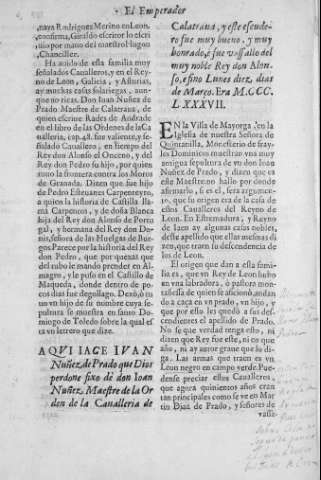 El Emperador
naya Rodriguez Merino en Leon,
confirma, Giraldo escritor lo escri
uio por mano del maestro Hugon
Chanciller.
Ha auido de esta familia muy
señalados Caualleros, y en el Reyno
de Leon, Galicia, y Asturias,
ay muchas casas solariegas, aunque
no ricas. Don Iuan Nuñez de
Prado Maestre de Calatraua, de
quien escriue Rades de Andrade
en el libro de las Ordenes de la Caualleria,
cap. 48. fue valiente, y señalado
Cauallero, en tiempo del
Rey don Alonso el Onceno, y del
Rey don Pedro su hijo. Este Iuan
tomó la frontera contra los Moros
de Granada. Dizen que fue hijo
de Pedro Esteuanez Carpenteyro,
a quien la historia de Castilla llama
Carpentos, y de doña Blanca
hija del Rey don Alonso de Portugal,
y hermana del Rey don Donis,
señora de las Huelgas de Burgos.
Parece por la historia del Rey
don Pedro, que por quexas que
del tubo le mando prender en Almagro,
y le puso en el Castillo de
Maqueda, donde dentro de pocos
dias fue degollado. Dexó, o tuuo
vn hijo de su nombre cuya sepultura
es muestra en santo Domingo
de Toledo sobre la qual esta
vn letrero que dize.
AQVI IACE IVAN
Nuñez de Prado que Dios
perdone fixo de don Ioan
Nuñez Maestre de la Or
den de la Caualleria de
Calatraua, y este escude-
ro fue muy bueno, y muy
honrado, e fue vassallo del
muy noble Rey don Alon-
so, e fino Lunes diez dias
de Março. Era M.CCC.
LXXXVII.
EN la Villa de Mayorga, en la
Iglesia de nuestra Señora de
Quintanilla, Monesterio de fray-
les Dominicos muestran vna muy
antigua sepultura de vn don Iuan
Nuñez de Prado, y dizen que es
este Maestre. no hallo por donde
afirmarlo, si es el, sera argumen-
to, que su origen era de la casa de
estos Caualleros del Reyno de
Leon. En Estremadura, y Reyno
de Iaen ay algunas casas nobles,
deste apellido que ellas mesmas di
zen, que traen su descendencia de
los de Leon.
El origen que dan a esta fami-
lia es, que vn Rey de Leon hubo
en vna labradora, o pastora mon-
tañesa de quien se aficionó, andan
do a caça en vn prado, vn hijo, y
que por esto les quedó a sus des-
cendientes el apellido de Prado.
No se que verdad tenga esto, ni
dizen que Rey fue este, ni en que
año, ni ay autor graue que lo di-
ga. Las armas que traen es vn
Leon negro en campo verde. Pue-
dense preciar estos Caualleros,
que agora quinientos años eran
tan principales como se ve en Mar
tin Diaz de Prado, y señores de
vassa-